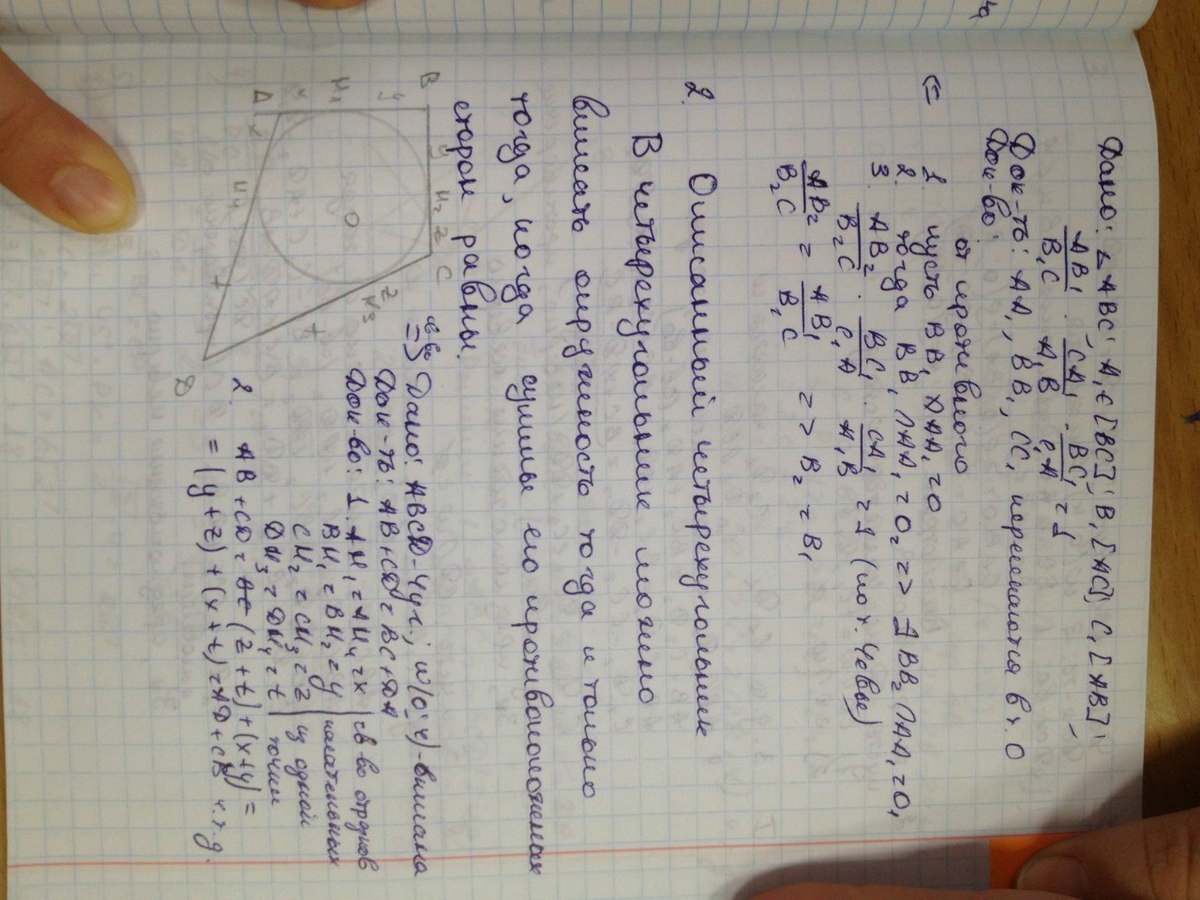 Дано: △ABC; A₁∈[BC]; B₁[AC]; C₁[AB];
AB₁/B₁C · CA₁/A₁B · BC₁/C₁A = 1
Док-ть: AA₁, BB₁, CC₁ пересекаются в т. O
Док-во:
от противного
⇐ 1. пусть BB₁ ∩ AA₁ = O
2. тогда BB₁ ∩ AA₁ = O₂ => ∃ BB₂ ∩ AA₁ = O₁
3. AB₂/B₂C · BC₁/C₁A · CA₁/A₁B = 1 (по т. Чевы)
AB₂/B₂C = AB₁/B₁C => B₂ = B₁
2. Описанный четырехугольник
В четырехугольник можно
вписать окружность тогда и только
тогда, когда суммы его противоположных
сторон равны.
св-во => Дано: ABCD - 4уг.; w(O; r) - вписана
Док-ть: AB+CD = BC+DA
Док-во: 1. AH₁ = AH₄ = x | св-во отрезков
BH₁ = BH₂ = y | касательных
CH₂ = CH₃ = z | из одной
DH₃ = DH₄ = t | точки
2. AB+CD = (z+t)+(x+y) =
= (y+z)+(x+t) = AD+CB ч.т.д.
B
y
H₁
x
A
x
H₄
t
D
t
H₃
z
C
z
H₂
y
O